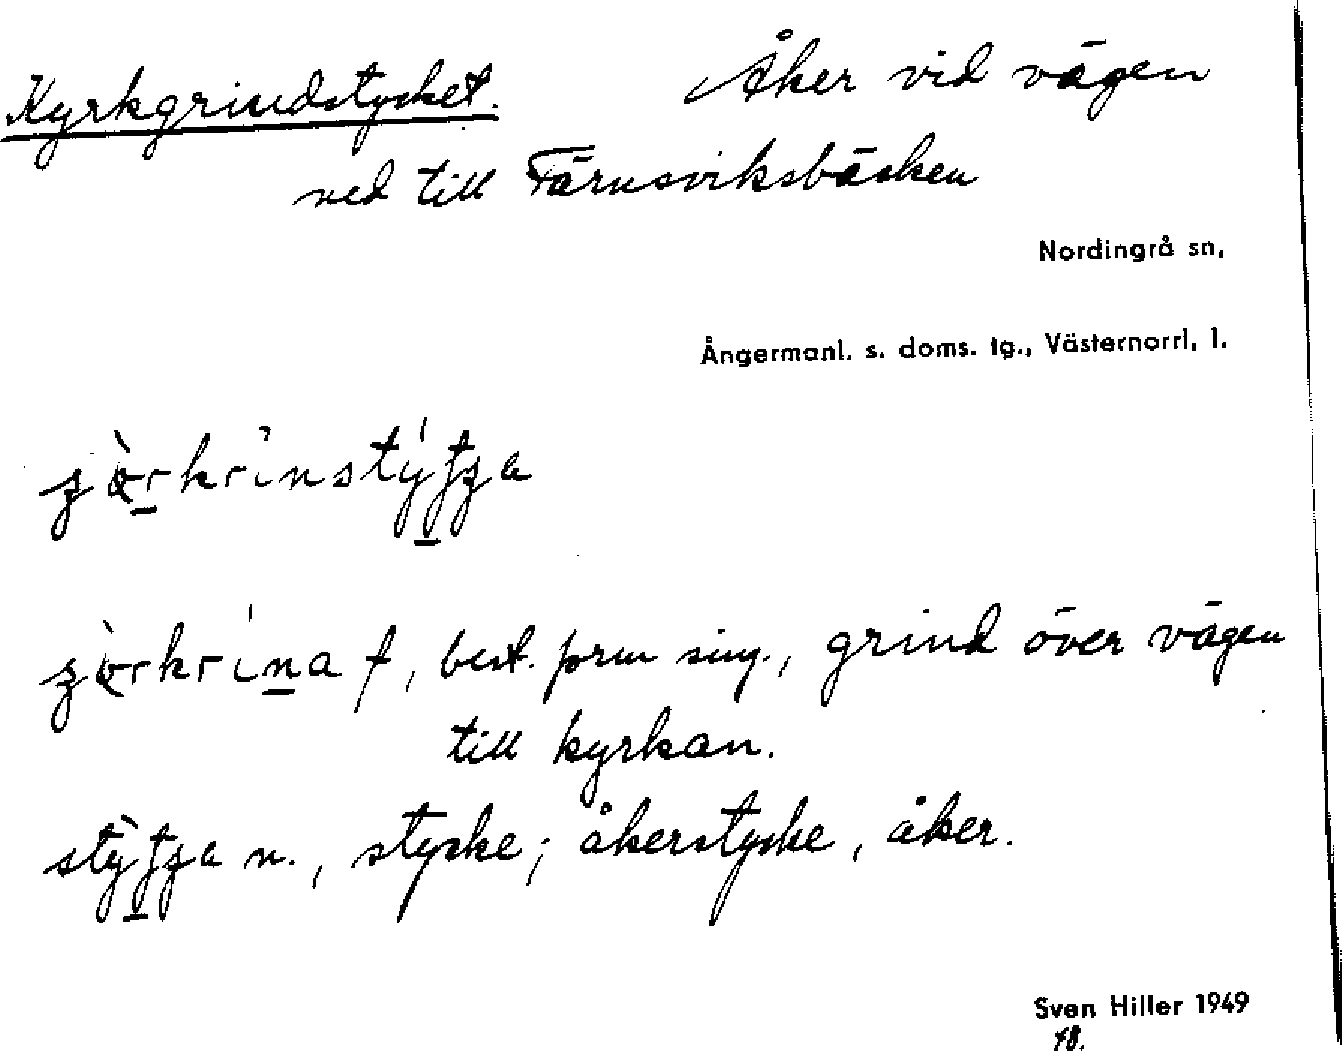 Kyrkgrindstycket. Åker vid vägen
ned till Färnsviksbäcken
Nordingrå sn,
Ångermanl. s. doms. tg., Västernorrl. l.
f, best. form sing., grind över vägen
till kyrkan.
n., stycke; åkerstycke, åker.
Sven Hiller 1949
48.